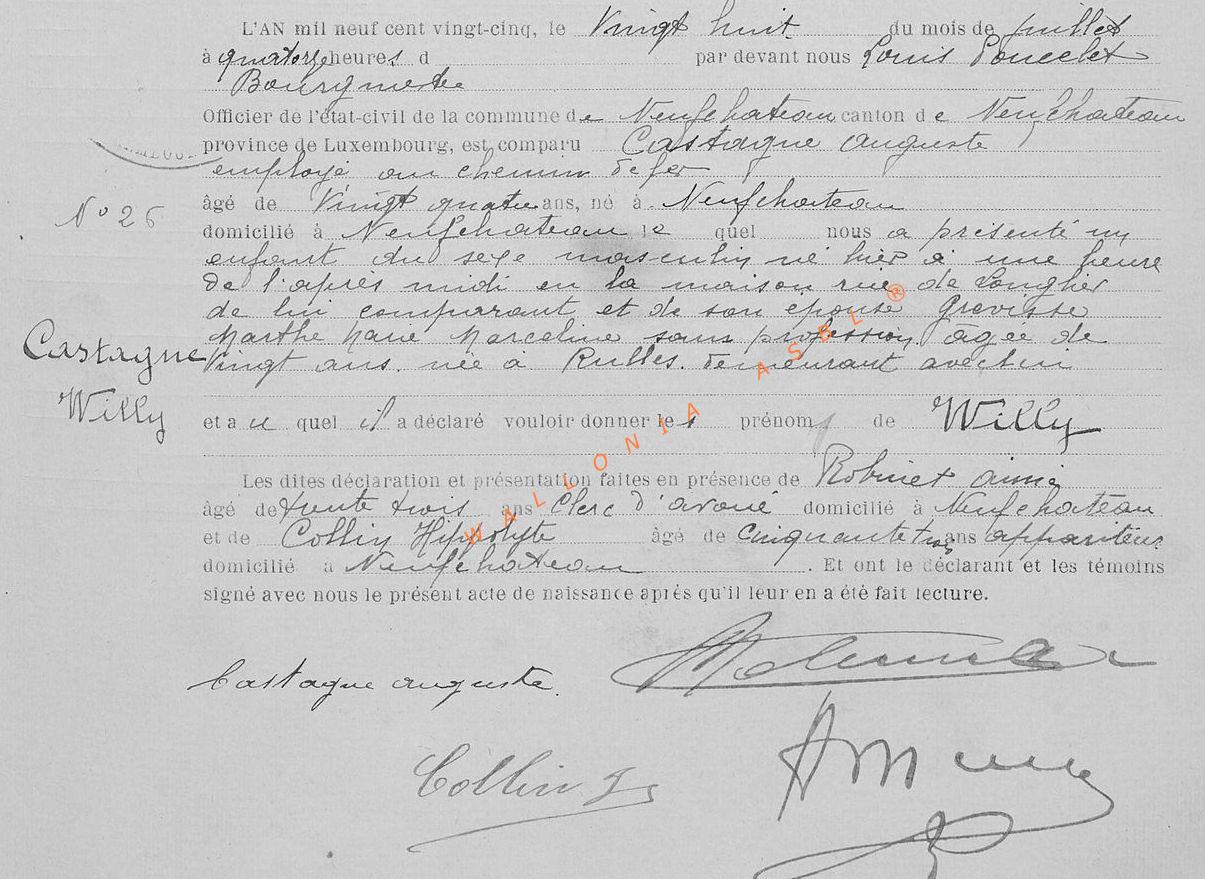 L'AN mil neuf cent vingt-cinq, le Vingt huit du mois de juillet
à quatorze heures d par devant nous Louis Poncelet
Bourgmestre
Officier de l'état-civil de la commune de Neufchateau canton de Neufchateau
province de Luxembourg, est comparu Castagne Auguste
employé au chemin de fer
N° 26
âgé de Vingt quatre ans, né à Neufchateau
domicilié à Neufchateau le quel nous a présenté un
enfant du sexe masculin né hier à une heure
de l'après midi en la maison rue de Longlier
de lui comparant et de son épouse Grevisse
Marthe Marie Marceline sans profession âgée de
Castagne
Vingt ans née à Rulles demeurant avec lui
Willy
et au quel il a déclaré vouloir donner le prénom de Willy
Les dites déclaration et présentation faites en présence de Robinet Aimé
âgé de trente trois ans Clerc d'avoué domicilié à Neufchateau
et de Collin Hippolyte âgé de Cinquante trois ans appariteur
domicilié à Neufchateau. Et ont le déclarant et les témoins
signé avec nous le présent acte de naissance après qu'il leur en a été fait lecture.
WALLONIA ASBL ®
Castagne Auguste.
Collin